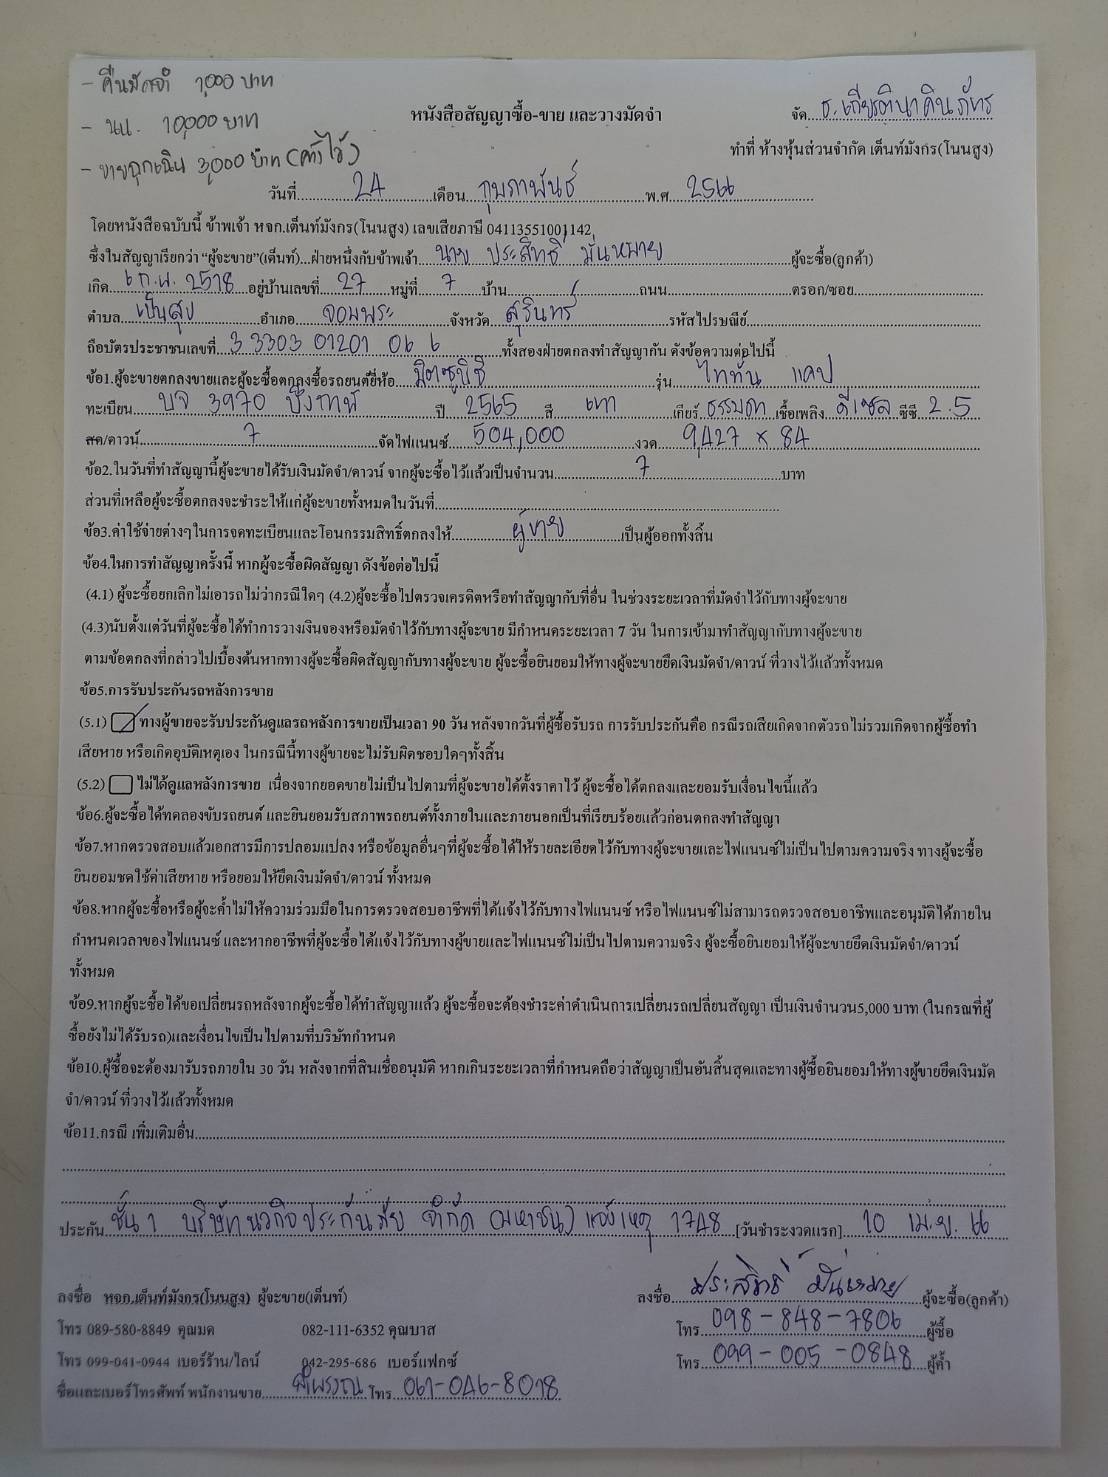 - คืนมัดจำ 1,000 บาท
- นน. 10,000 บาท
- ขายฉุกเฉิน 3,000 บาท (ค้ำไว้)
หนังสือสัญญาซื้อ-ขาย และวางมัดจำ
จัด ธ.เกียรตินาคินภัทร
ทำที่ ห้างหุ้นส่วนจำกัด เต็นท์มังกร(โนนสูง)
วันที่ 24 เดือน กุมภาพันธ์ พ.ศ. 2566
โดยหนังสือฉบับนี้ ข้าพเจ้า หจก.เต็นท์มังกร(โนนสูง) เลขเสียภาษี 04113551001142
ซึ่งในสัญญาเรียกว่า “ผู้จะขาย”(เต็นท์)...ฝ่ายหนึ่งกับข้าพเจ้า นาย ประสิทธิ์ มั่นหมาย ผู้จะซื้อ(ลูกค้า)
เกิด 6 ก.ย. 2518 อยู่บ้านเลขที่ 27 หมู่ที่ 7 บ้าน ถนน ตรอก/ซอย
ตำบล เป็นสุข อำเภอ จอมพระ จังหวัด สุรินทร์ รหัสไปรษณีย์
ถือบัตรประชาชนเลขที่ 3 3303 01201 06 6 ทั้งสองฝ่ายตกลงทำสัญญากัน ดังข้อความต่อไปนี้
ข้อ1.ผู้จะขายตกลงขายและผู้จะซื้อตกลงซื้อรถยนต์ยี่ห้อ มิตซูบิชิ รุ่น ไททัน แคป
ทะเบียน บจ 3970 บึงกาฬ ปี 2565 สี เทา เกียร์ ธรรมดา เชื้อเพลิง ดีเซล ซีซี 2.5
สด/ดาวน์ 7 จัดไฟแนนซ์ 504,000 งวด 9,427 x 84
ข้อ2.ในวันที่ทำสัญญานี้ผู้จะขายได้รับเงินมัดจำ/ดาวน์ จากผู้จะซื้อไว้แล้วเป็นจำนวน 7 บาท
ส่วนที่เหลือผู้จะซื้อตกลงจะชำระให้แก่ผู้จะขายทั้งหมดในวันที่
ข้อ3.ค่าใช้จ่ายต่างๆในการจดทะเบียนและโอนกรรมสิทธิ์ตกลงให้ ผู้ขาย เป็นผู้ออกทั้งสิ้น
ข้อ4.ในการทำสัญญาครั้งนี้ หากผู้จะซื้อผิดสัญญา ดังข้อต่อไปนี้
(4.1) ผู้จะซื้อยกเลิกไม่เอารถไม่ว่ากรณีใดๆ (4.2)ผู้จะซื้อไปตรวจเครดิตหรือทำสัญญากับที่อื่น ในช่วงระยะเวลาที่มัดจำไว้กับทางผู้จะขาย
(4.3)นับตั้งแต่วันที่ผู้จะซื้อได้ทำการวางเงินจองหรือมัดจำไว้กับทางผู้จะขาย มีกำหนดระยะเวลา 7 วัน ในการเข้ามาทำสัญญากับทางผู้จะขาย
ตามข้อตกลงที่กล่าวไปเบื้องต้นหากทางผู้จะซื้อผิดสัญญากับทางผู้จะขาย ผู้จะซื้อยินยอมให้ทางผู้จะขายยึดเงินมัดจำ/ดาวน์ ที่วางไว้แล้วทั้งหมด
ข้อ5.การรับประกันรถหลังการขาย
(5.1) ทางผู้ขายจะรับประกันดูแลรถหลังการขายเป็นเวลา 90 วัน หลังจากวันที่ผู้ซื้อรับรถ การรับประกันคือ กรณีรถเสียเกิดจากตัวรถ ไม่รวมเกิดจากผู้ซื้อทำ
เสียหาย หรือเกิดอุบัติเหตุเอง ในกรณีนี้ทางผู้ขายจะไม่รับผิดชอบใดๆทั้งสิ้น
(5.2) ไม่ได้ดูแลหลังการขาย เนื่องจากยอดขายไม่เป็นไปตามที่ผู้จะขายได้ตั้งราคาไว้ ผู้จะซื้อได้ตกลงและยอมรับเงื่อนไขนี้แล้ว
ข้อ6.ผู้จะซื้อได้ทดลองขับรถยนต์ และยินยอมรับสภาพรถยนต์ทั้งภายในและภายนอกเป็นที่เรียบร้อยแล้วก่อนตกลงทำสัญญา
ข้อ7.หากตรวจสอบแล้วเอกสารมีการปลอมแปลง หรือข้อมูลอื่นๆที่ผู้จะซื้อได้ให้รายละเอียดไว้กับทางผู้จะขายและไฟแนนซ์ไม่เป็นไปตามความจริง ทางผู้จะซื้อ
ยินยอมชดใช้ค่าเสียหาย หรือยอมให้ยึดเงินมัดจำ/ดาวน์ ทั้งหมด
ข้อ8.หากผู้จะซื้อหรือผู้จะค้ำไม่ให้ความร่วมมือในการตรวจสอบอาชีพที่ได้แจ้งไว้กับทางไฟแนนซ์ หรือไฟแนนซ์ไม่สามารถตรวจสอบอาชีพและอนุมัติได้ภายใน
กำหนดเวลาของไฟแนนซ์ และหากอาชีพที่ผู้จะซื้อได้แจ้งไว้กับทางผู้ขายและไฟแนนซ์ไม่เป็นไปตามความจริง ผู้จะซื้อยินยอมให้ผู้จะขายยึดเงินมัดจำ/ดาวน์
ทั้งหมด
ข้อ9.หากผู้จะซื้อได้ขอเปลี่ยนรถหลังจากผู้จะซื้อได้ทำสัญญาแล้ว ผู้จะซื้อจะต้องชำระค่าดำเนินการเปลี่ยนรถเปลี่ยนสัญญา เป็นเงินจำนวน5,000 บาท (ในกรณที่ผู้
ซื้อยังไม่ได้รับรถ)และเงื่อนไขเป็นไปตามที่บริษัทกำหนด
ข้อ10.ผู้ซื้อจะต้องมารับรถภายใน 30 วัน หลังจากที่สินเชื่ออนุมัติ หากเกินระยะเวลาที่กำหนดถือว่าสัญญาเป็นอันสิ้นสุดและทางผู้ซื้อยินยอมให้ทางผู้ขายยึดเงินมัด
จำ/ดาวน์ ที่วางไว้แล้วทั้งหมด
ข้อ11.กรณี เพิ่มเติมอื่น
ประกัน ชั้น 1 บริษัท นวกิจประกันภัย จำกัด (มหาชน) แจ้งเหตุ 1748 [วันชำระงวดแรก] 10 เม.ย. 66
ลงชื่อ หจก.เต็นท์มังกร(โนนสูง) ผู้จะขาย(เต็นท์)
ลงชื่อ ประสิทธิ์ มั่นหมาย ผู้จะซื้อ(ลูกค้า)
โทร 089-580-8849 คุณมด 082-111-6352 คุณบาส
โทร 098-848-7806 ผู้ซื้อ
โทร 099-041-0944 เบอร์ร้าน/ไลน์ 042-295-686 เบอร์แฟกซ์
โทร 099-005-0848 ผู้ค้ำ
ชื่อและเบอร์โทรศัพท์ พนักงานขาย โทร 061-046-8018